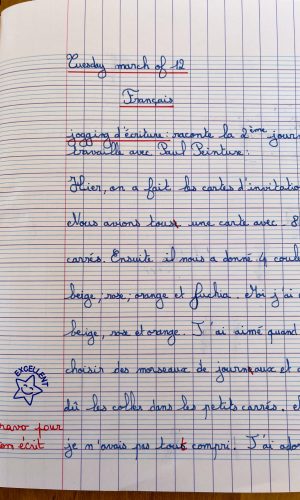 Tuesday march of 12
Français
jogging d'écriture : raconte la 2ème jour
travaille avec Paul Peinture :
Hier, on a fait les cartes d'invitatio
Nous avions tous une carte avec 8
carrés. Ensuite il nous a donné 4 coul
beige, rose, orange et fuchia. Moi j'ai
beige, rose et orange. J'ai aimé quand
choisir des morseaux de journeaux et
EXCELLENT
dû les colles dans les petits carrés. e
ravo pour
on écrit
je n'avais pas tout compri. J'ai ador